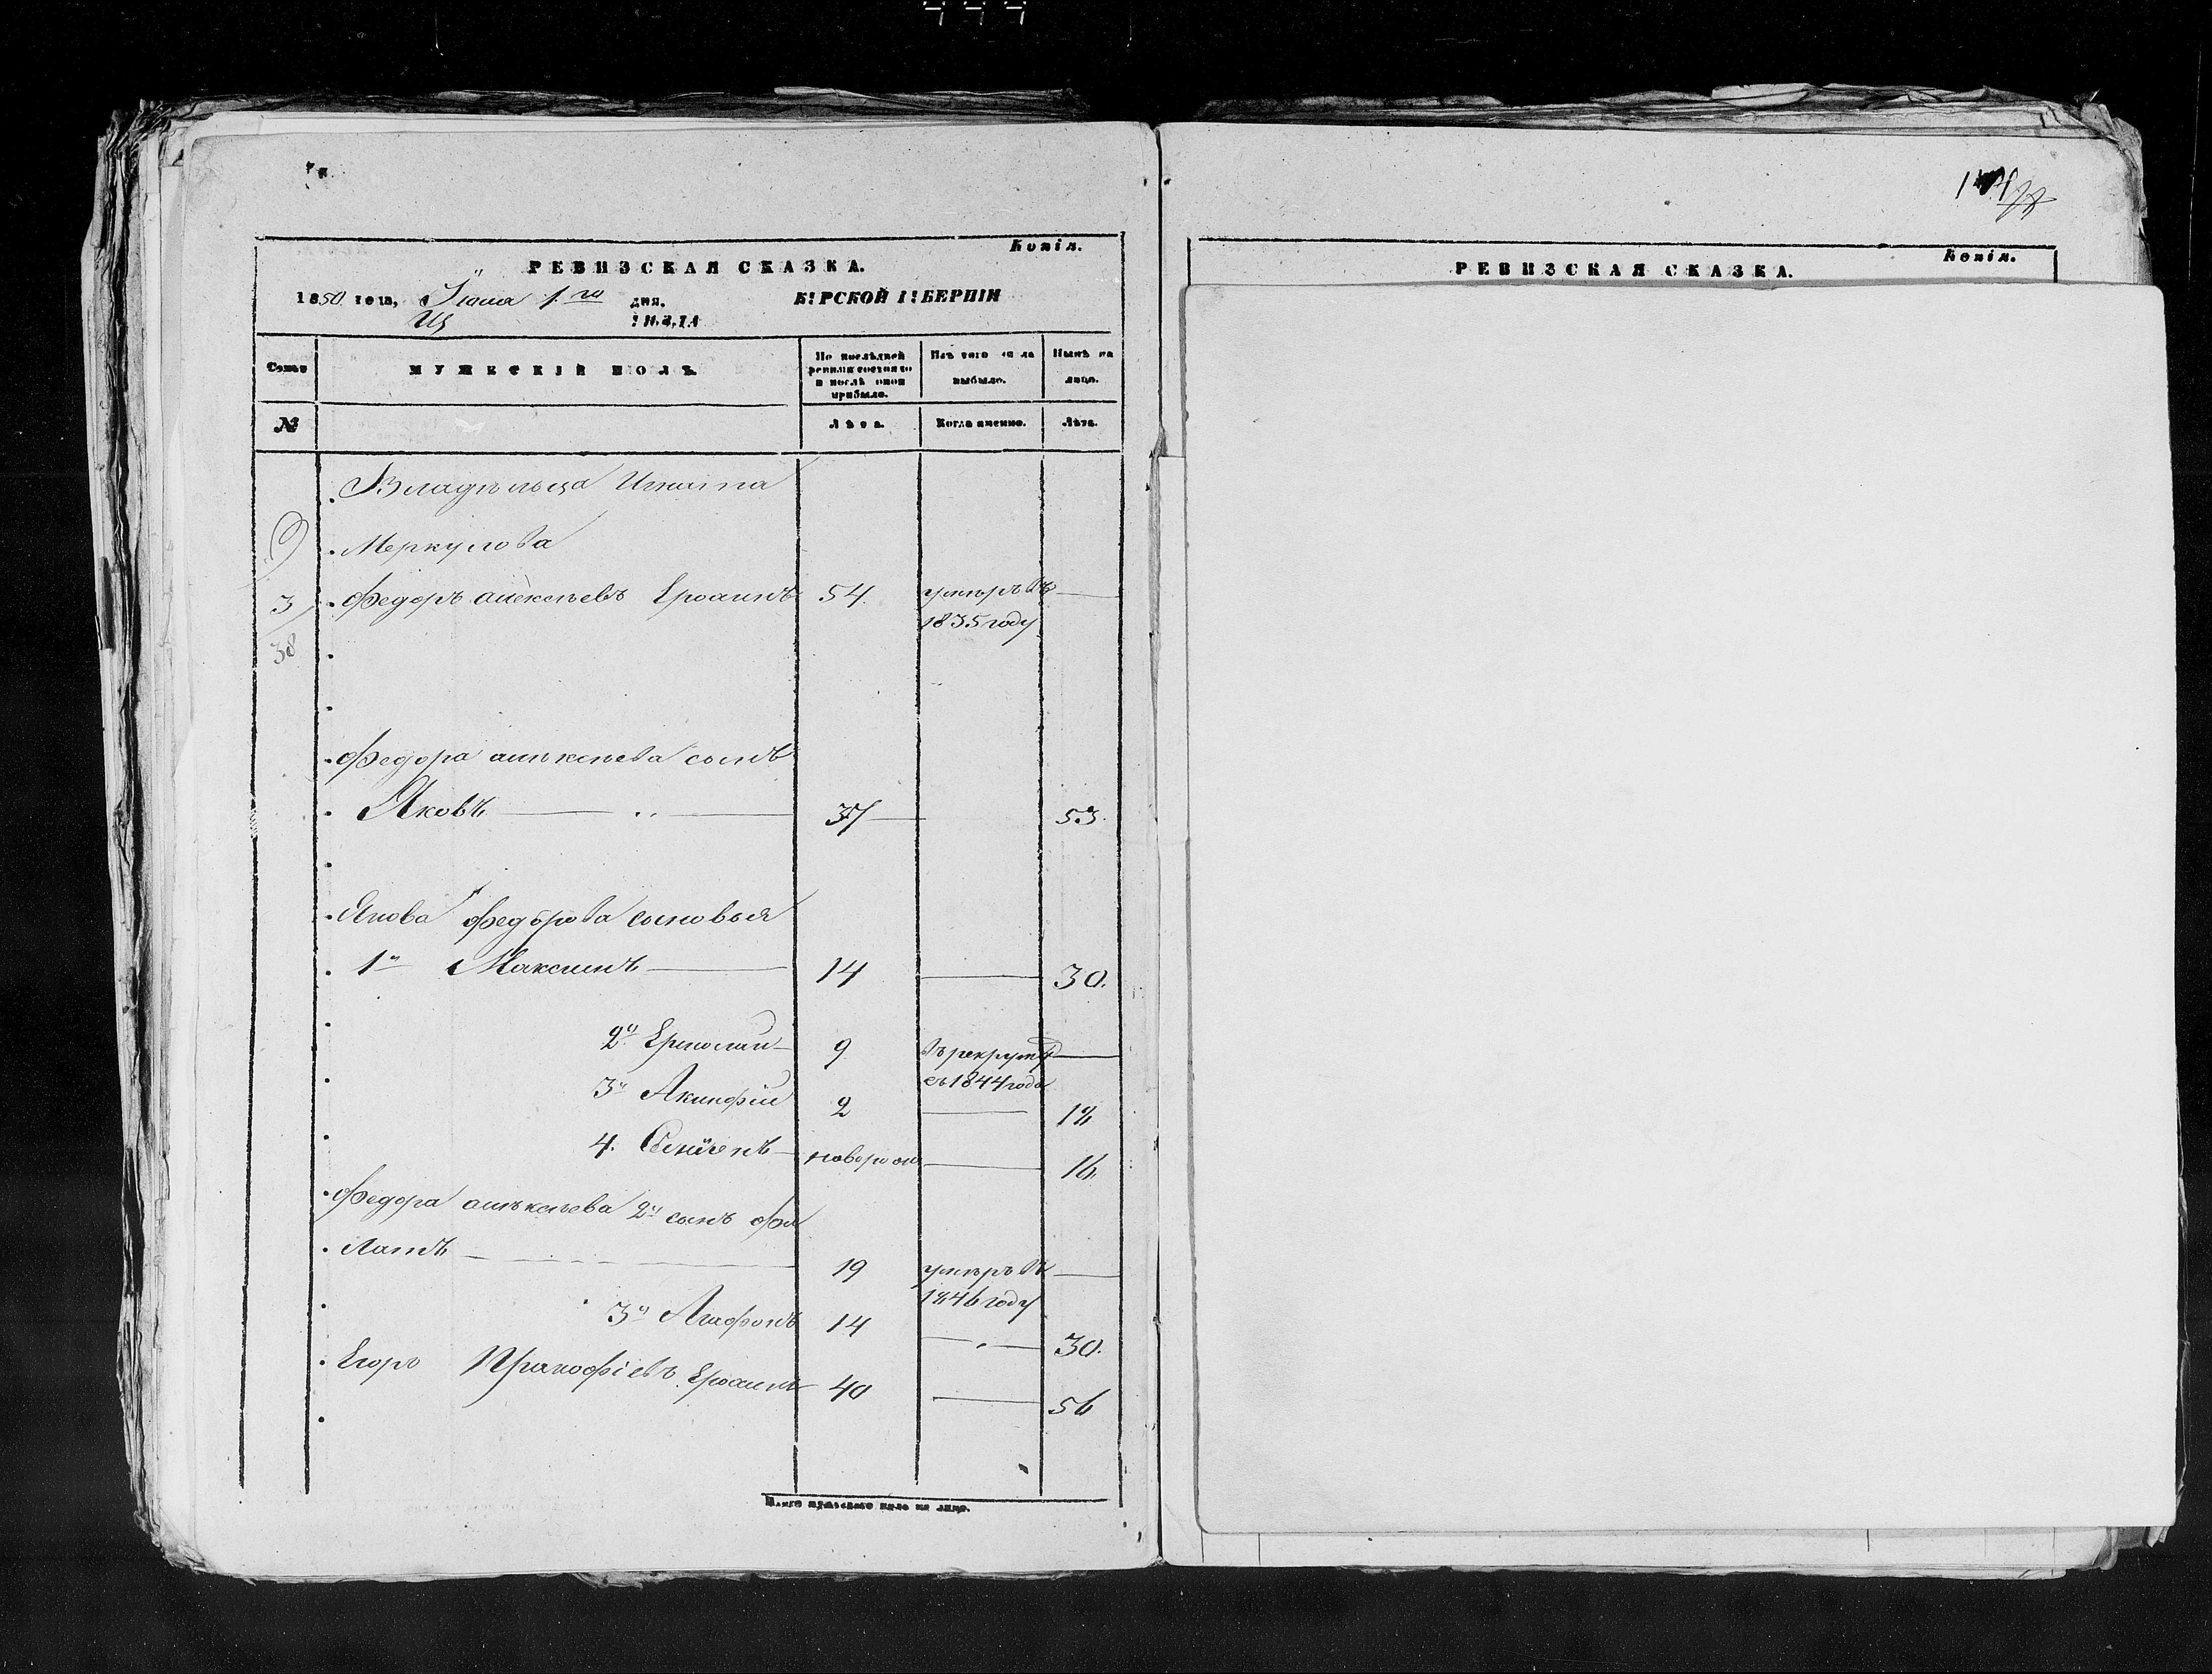 Копія.
РЕВИЗСКАЯ СКАЗКА.
1850 года, Іюля 1го дня. КУРСКОЙ ГУБЕРНІИ
УѢЗДА
Семьи
МУЖЕСКІЙ ПОЛЪ.
По послѣдней
ревизіи состояло
и послѣ оной
прибыло.
Изъ того числа
выбыло.
Нынѣ на
лицо.
№
Лѣта.
Когда именно.
Лѣта.
Владѣльца Игната
Меркулова
3 Федоръ Алексѣевъ Ерохинъ 54. умѣръ въ
1835 году
38
Федора алѣксѣева сынъ
Яковъ 37 53.
Якова Федорова сыновья
1й Максимъ 14 30.
2й Ермолай 9 въ рекрутѣ
съ 1844 года
3й Акинфій 2 18
4. новорож 16
Федора алѣксѣева 2й сынъ Фи
латъ 19 умѣръ въ
1846 году
3й Агафонъ 14 30.
Егоръ Пракофіевъ Ерохинъ 40 56
Итого мужескаго пола на лицо.
Копія.
РЕВИЗСКАЯ СКАЗКА.